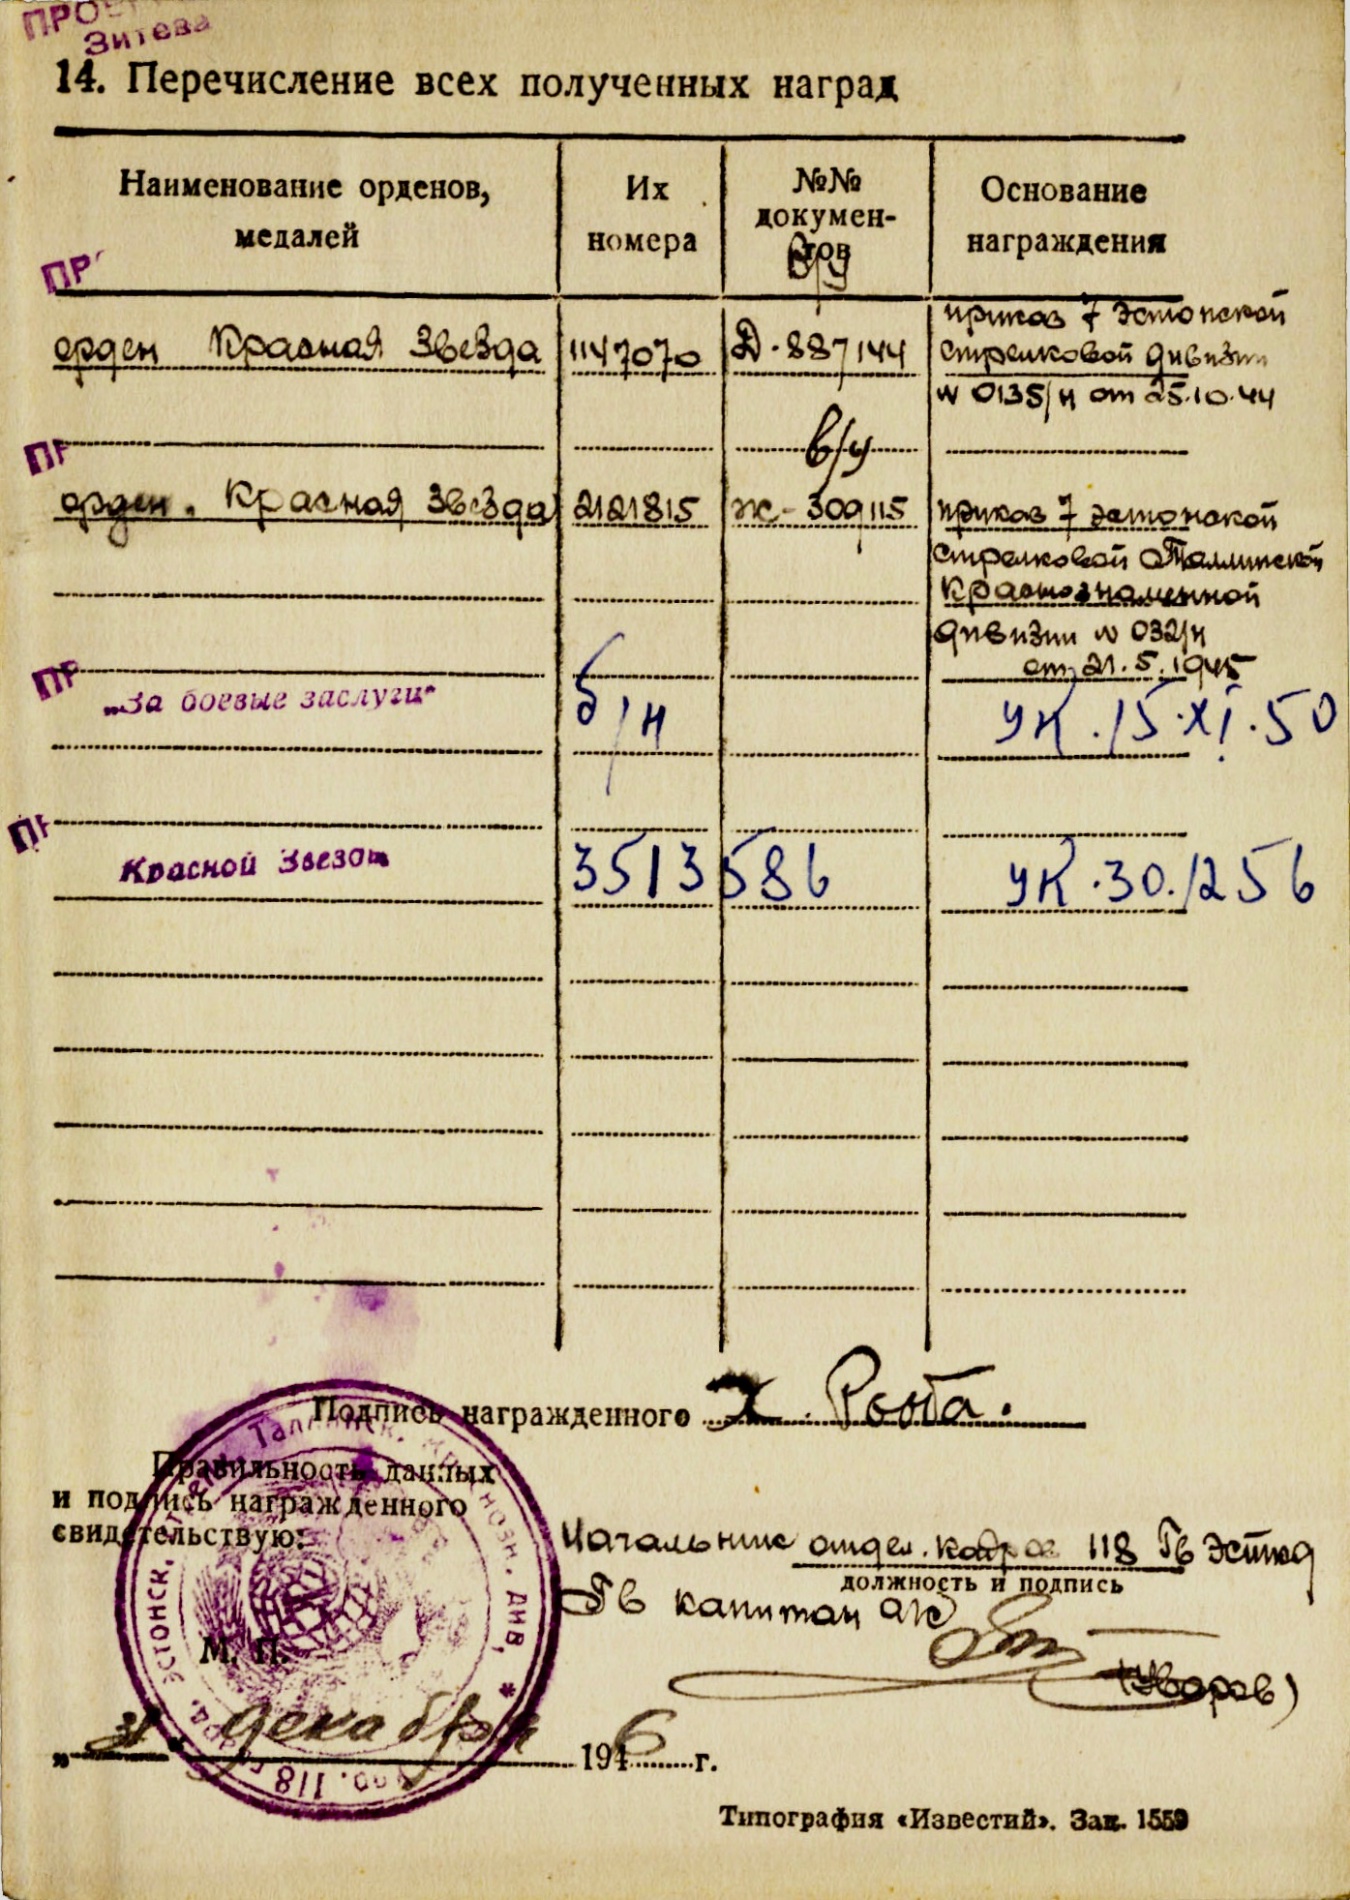 Зитева
14. Перечисление всех полученных наград
Наименование орденов,
медалей
Их
номера
№№
докумен-
тов
Основание
награждения
ПР
в/у
орден Красная Звезда 1147070 Д-887144 приказ 7 Эстонской
стрелковой дивизии
№ 0135/н от 25.10.44
ПР
в/у
орден. Красная Звезда 2121815 Ж-309115 приказ 7 эстонской
стрелковой Таллинской
Краснознаменной
дивизии № 032/н
от 21.5.1945
ПР
„За боевые заслуги“ б/н УК.15.XI.50
ПР
Красной Звезды 3513586 УК.30.1256
Подпись награжденного Х. Рооба.
Правильность данных
и подпись награжденного
свидетельствую:
Начальник отдел. кадров 118 Гв Эстксд
должность и подпись
Гв капитан а/с
(Уваров)
М. П.
„31“ декабря 1946 г.
Эстонск. Таллинск. див. * 118
Типография «Известий». Зак. 1559